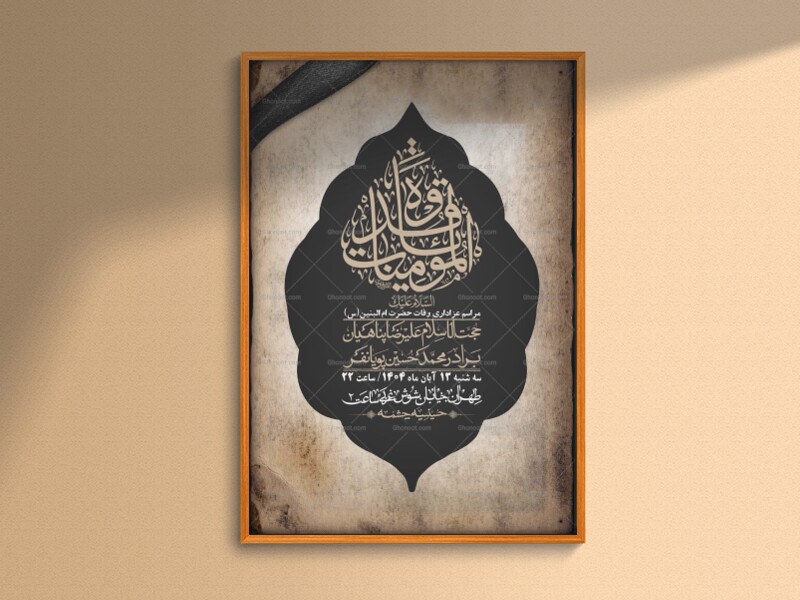 قدوة المؤمنات
السلام علیک
مراسم عزاداری وفات حضرت ام البنین(س)
حجت الاسلام علیرضا پناهیان
برادر محمد حسین پویانفر
سه شنبه ۱۳ آبان ماه ۱۴۰۴ / ساعت ۲۲
طهران خیابان شوش غربی ساعت ۲
حسینیه چشمه